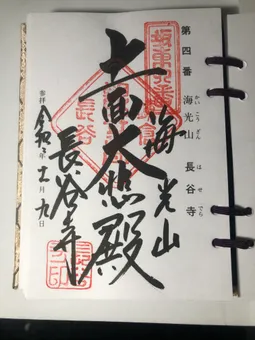 第四番 海光山 長谷寺
かいこうざん はせでら
坂東四番
海光山
十一面大悲殿
長谷寺
奉拝
令和 年 十一月 九日